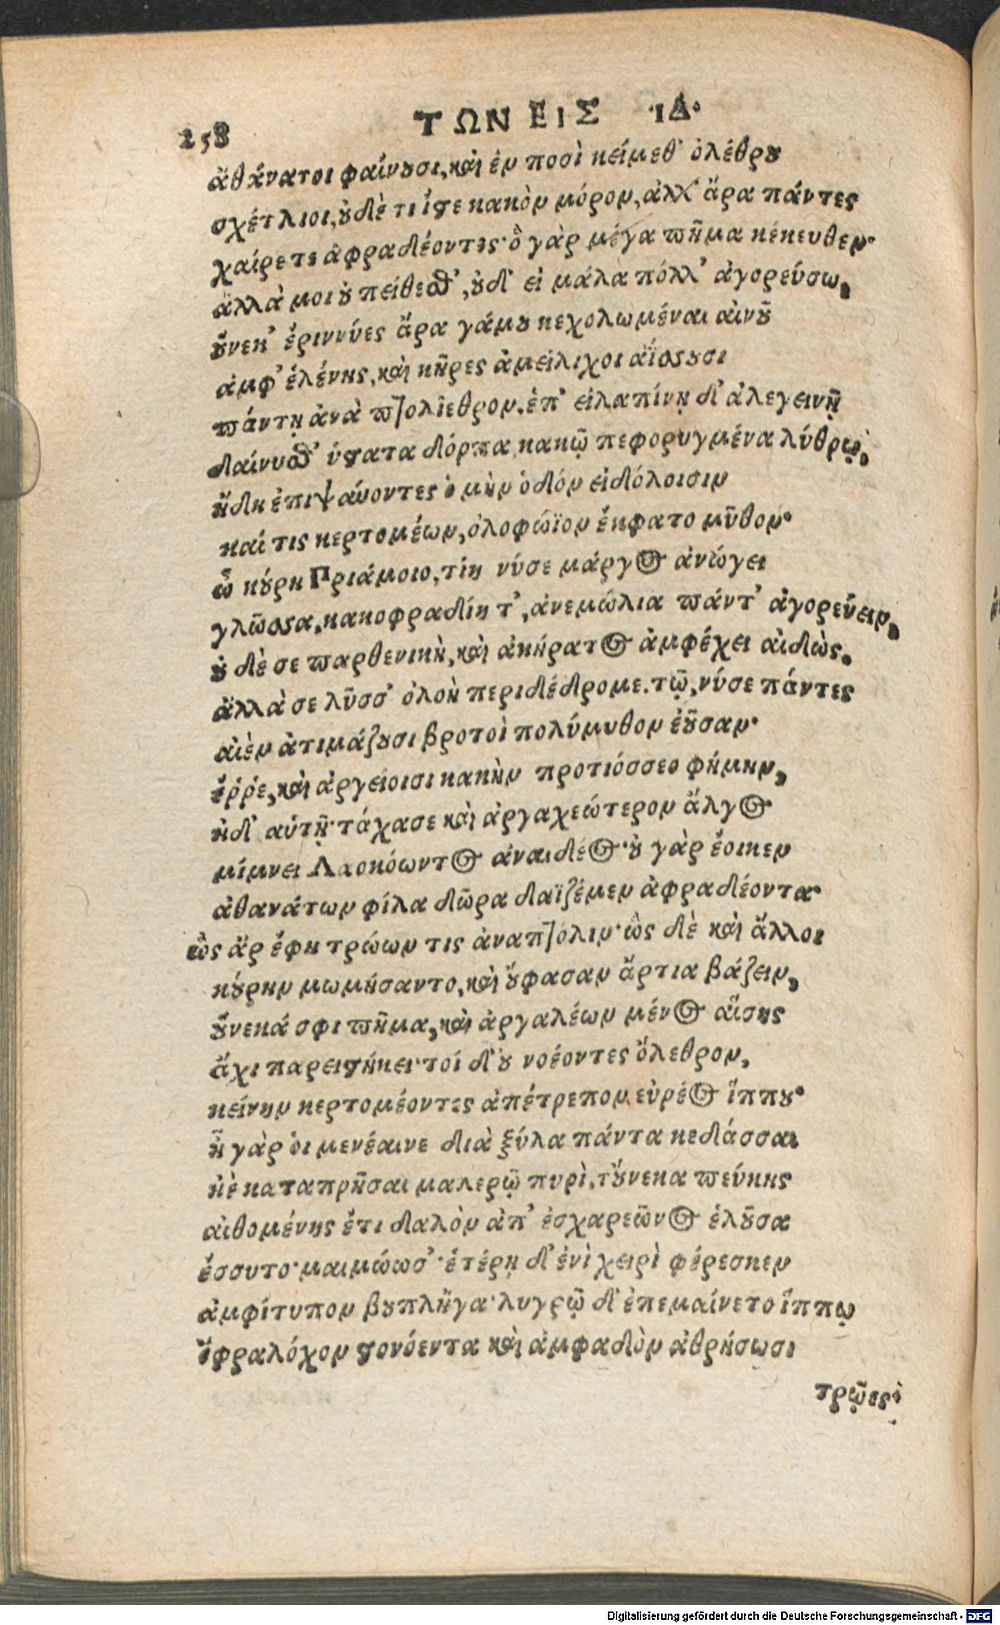 258 ΤΩΝ ΕΙΣ ΙΔ.
ἀθάνατοι φαίνουσι, καὶ ἐν ποσὶ κείμεθ᾽ ὀλέθρου
σχέτλιοι, οὐδέ τι ἴστε κακὸν μόρον, ἀλλ᾽ ἄρα πάντες
χαίρετε ἀφραδέοντες· ὃ γὰρ μέγα πῆμα κέκευθεν·
ἀλλά μοι οὐ πείθεσθ᾽, οὐδ᾽ εἰ μάλα πόλλ᾽ ἀγορεύσω,
οὕνεκ᾽ ἐριννύες ἄρα γάμου κεχολωμέναι αἰνοῦ
ἀμφ᾽ ἑλένης, καὶ κῆρες ἀμείλιχοι ἀΐσσουσι
πάντῃ ἀνὰ πτολίεθρον. ἐπ᾽ εἰλαπίνῃ δ᾽ ἀλεγεινῇ
δαίνυσθ᾽ ὕστατα δόρπα κακῷ πεφορυγμένα λύθρῳ,
ἤδη ἐπιψαύοντες ὁ μὴν ὁδόν εἰδόλοισιν
καί τις κερτομέων, ὀλοφώϊον ἔκφατο μῦθον·
ὦ κούρη Πριάμοιο, τίη νύσε μάργος ἀνώγει
γλῶσσα, κακοφραδίη τ᾽, ἀνεμώλια πάντ᾽ ἀγορεύειν,
οὐδὲ σε παρθενικὴ, καὶ ἀκήρατος ἀμφέχει αἰδὼς.
ἀλλὰ σε λῦσσ᾽ ὀλοὴ περιδέδρομε. τῷ, νύσε πάντες
αἰὲν ἀτιμάζουσι βροτοὶ πολύμυθον ἐοῦσαν·
ἔῤῥε, καὶ ἀργείοισι κακὴν προτιόσσεο φήμην,
ἠδ᾽ αὐτῇ· τάχασε καὶ ἀργαχεώτερον ἄλγος
μίμνει Λαοκόωντος ἀναιδέος· οὐ γὰρ ἔοικεν
ἀθανάτων φίλα δῶρα δαϊζέμεν ἀφραδέοντα·
ὣς ἄρ ἔφη τρώων τις ἀναπτόλιν· ὣς δὲ καὶ ἄλλοι
κούρην μωμήσαντο, καὶ οὔφασαν ἄρτια βάζειν,
οὕνεκά σφι πῆμα, καὶ ἀργαλέων μένος αἴσης
ἄχι παρειστήκει· τοί δ᾽ οὐ νοέοντες ὄλεθρον,
κείνην κερτομέοντες ἀπέτρεπον εὐρέος ἵππου·
ἦ γὰρ οἱ μενέαινε διὰ ξύλα πάντα κεδάσσαι
ἠὲ καταπρῆσαι μαλερῷ πυρὶ. τοὔνεκα πεύκης
αἰθομένης ἔτι δαλὸν ἀπ᾽ ἐσχαρεῶνος ἑλοῦσα
ἔσσυτο· μαιμώωσ᾽· ἑτέρῃ δ᾽ ἐνὶ χειρὶ φέρεσκεν
ἀμφίτυπον βουπλῆγα· λυγρῷ δ᾽ ἐπεμαίνετο ἵππῳ
ὄφραλόχον στονόεντα καὶ ἀμφαδὸν ἀθρήσωσι
τρῶες·
Digitalisierung gefördert durch die Deutsche Forschungsgemeinschaft - DFG